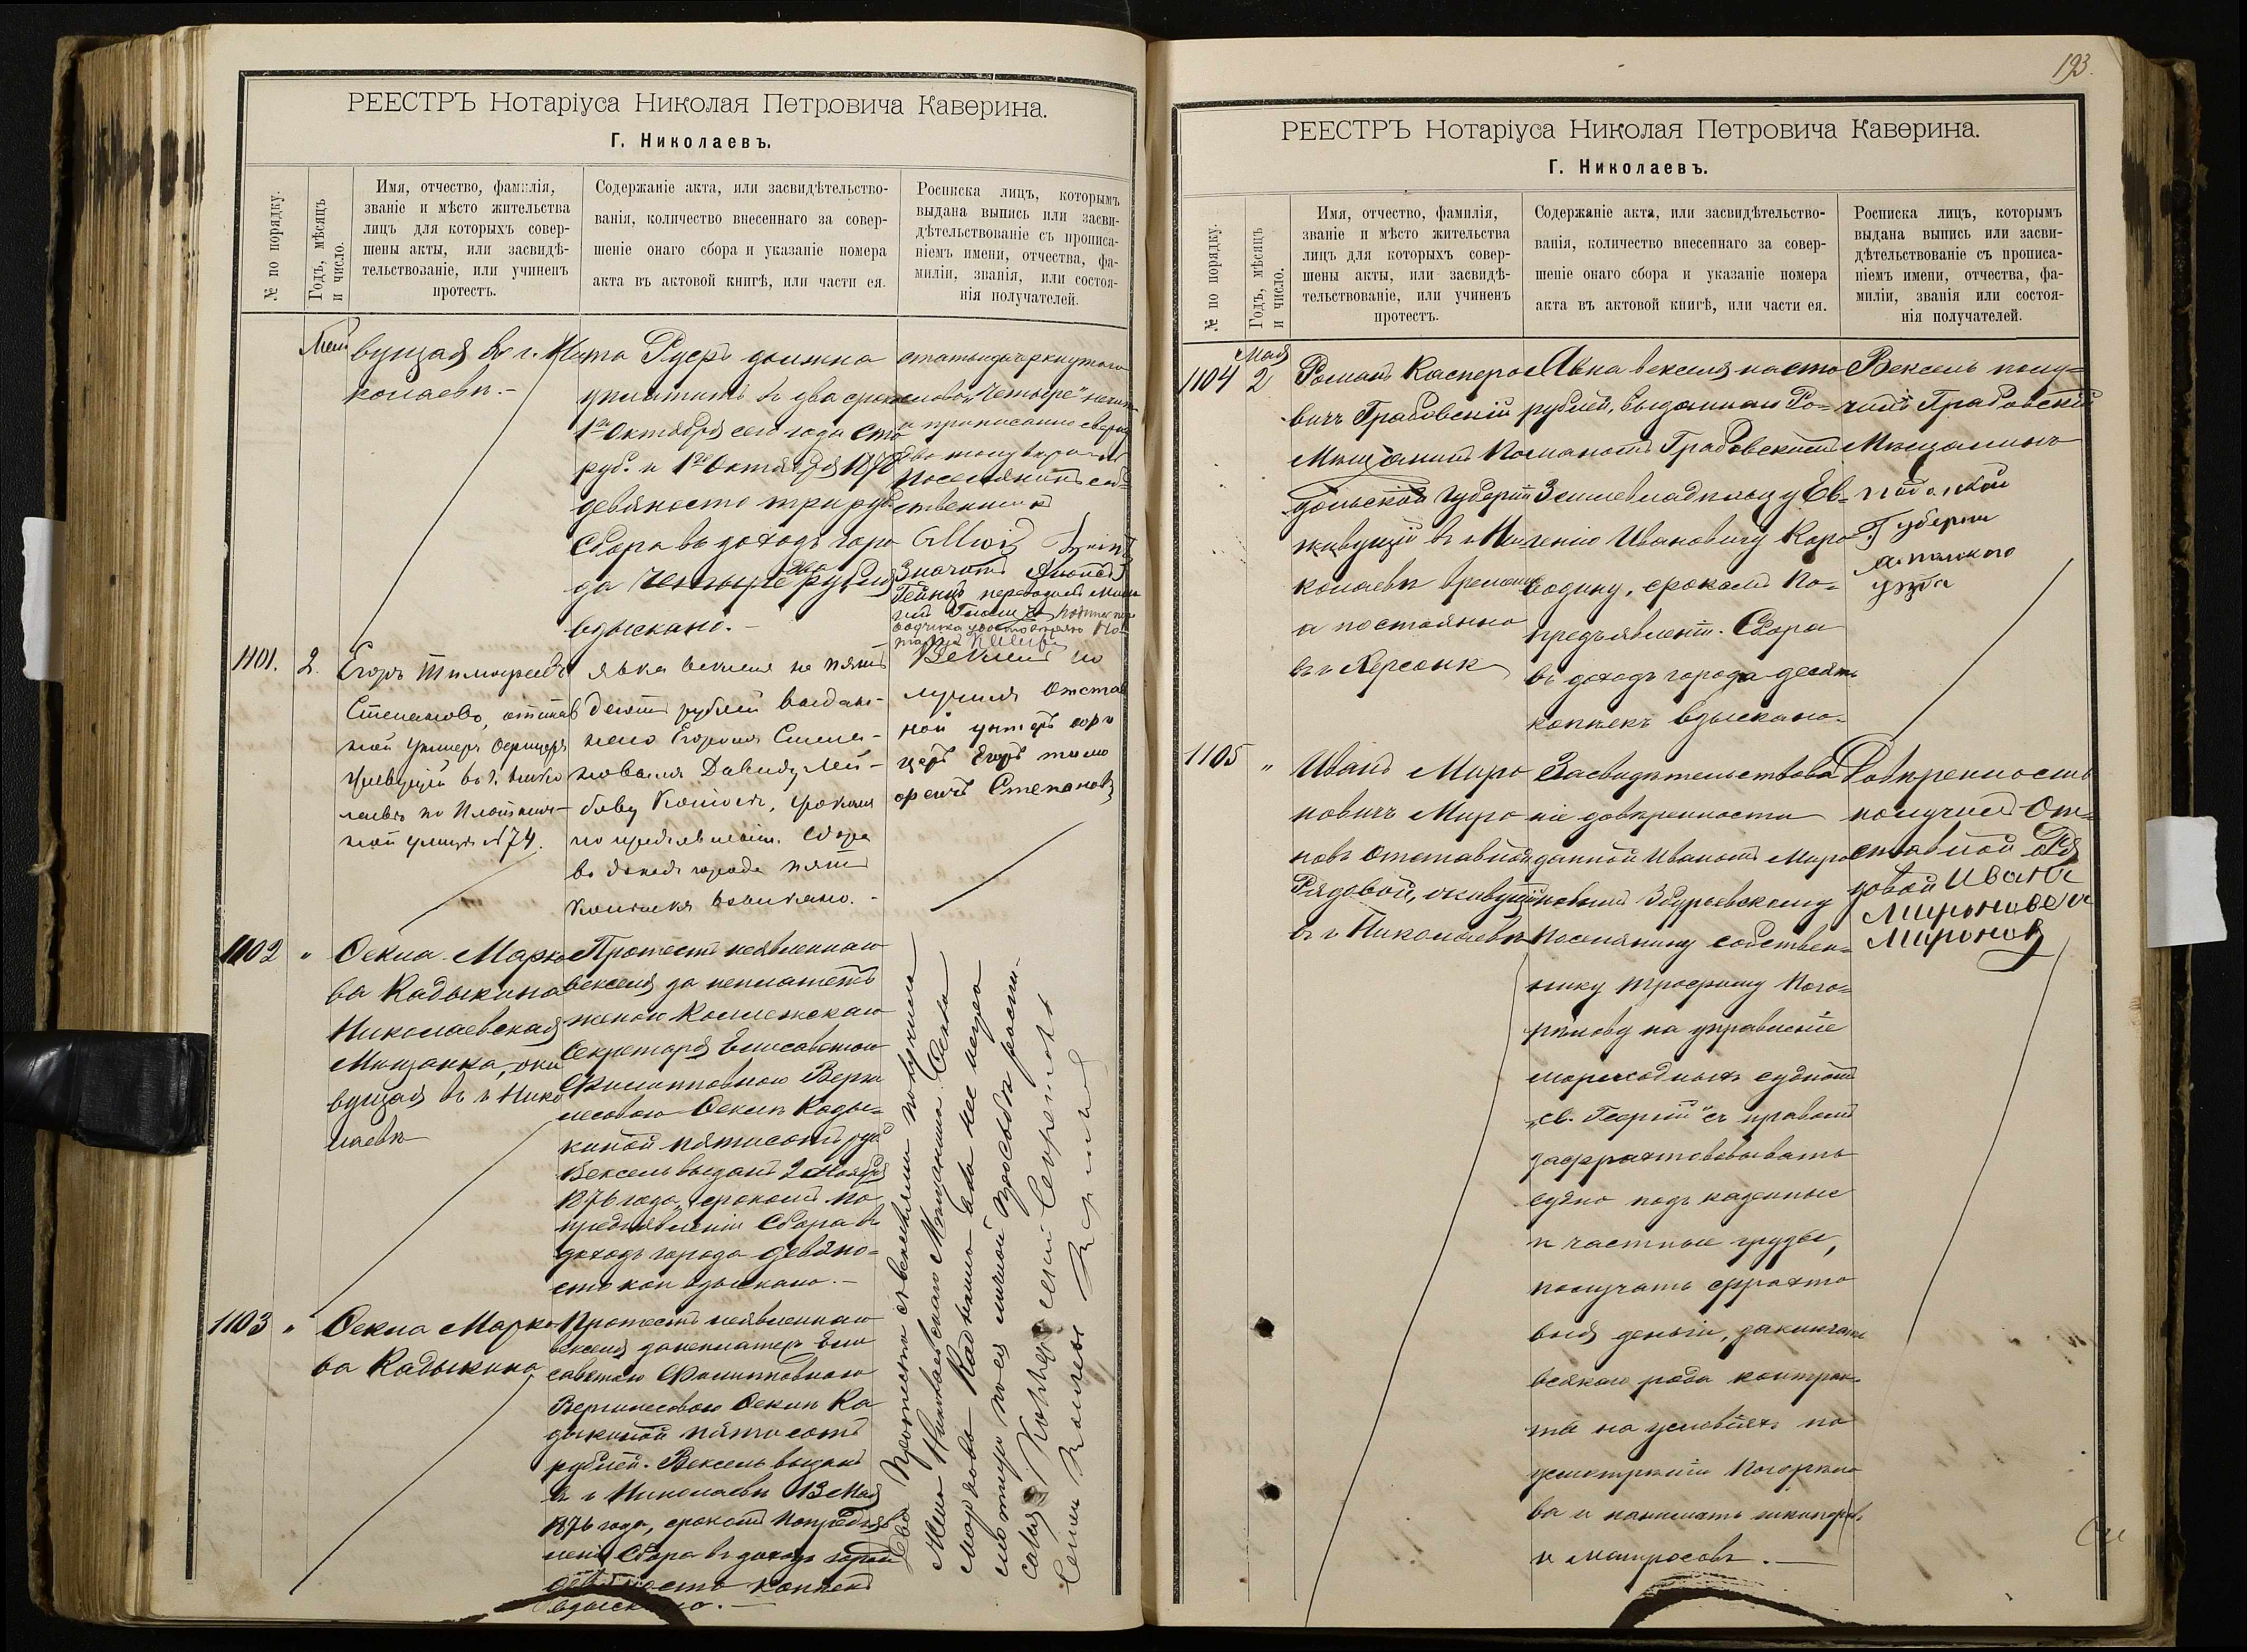 РЕЕСТРЪ Нотаріуса Николая Петровича Каверина.
Г. Николаевъ.
№ по порядку.
Годъ, мѣсяцъ
и число.
Имя, отчество, фамилія,
званіе и мѣсто жительства
лицъ для которыхъ совер-
шены акты, или засвидѣ-
тельствованіе, или учиненъ
протестъ.
Содержаніе акта, или засвидѣтельство-
ванія, количество внесеннаго за совер-
шеніе онаго сбора и указаніе номера
акта въ актовой книгѣ, или части ея.
Росписка лицъ, которымъ
выдана выпись или засви-
дѣтельствованіе съ прописа-
ніемъ имени, отчества, фа-
миліи, званія, или состоя-
нія получателей.
вущая въ г. Ни
колаевѣ.-
должна
уплатить въ два срока
1го Октября сего года сто
руб. и 1го Октября 1878
девяносто три руб.
Сбора въ доходъ горо
да четыре два рубля
взыскано.-
слово "четыре"
поселянинъ соб-
ственникъ
1101.
2.
Егоръ Тимофеевъ
Степановъ, отстав
ной унтеръ офицеръ
живущій въ г. Нико
лаевѣ по
ной улицѣ №74.
явка векселя на пять
десятъ рублей выдан-
наго Егоромъ Степа-
новымъ Давиду Лей-
бову срокомъ
по предъявленіи. Сбора
въ доходъ города пять
копѣекъ взыскано.-
Вексель по
лучилъ отстав
ной унтеръ офи
церъ Егоръ тимо
феичъ Степановъ
1102
"
Ѳекла Марко
ва Кадыкина
Николаевская
Мѣщанка, жи
вущая въ г. Нико
лаевѣ
Протестъ неявленнаго
векселя за неплатежъ
женою Коллежскаго
Секретаря Елисаветою
Филипповною Верги
лесовою Ѳеклѣ Кады-
киной пятисотъ руб
Вексель выданъ 2 Ноября
1876 года, срокомъ по
предъявленіи Сбора въ
доходъ города девяно-
сто коп взыскано.-
1103
"
Ѳекла Марко
ва Кадыкина
Протестъ неявленнаго
векселя за неплатежъ Ели
саветою Филипповною
Вергилесовою Ѳеклѣ Ка
дыкиной пятьсотъ
рублей. Вексель выданъ
въ г Николаевѣ 13 Мая
1876 года, срокомъ по предъяв
леніи Сбора въ доходъ города
девяносто копѣекъ
взыскано.-
Два Протеста съ векселями получила
Николаевская Мѣщанка Ѳекла
Маркова Кадыкина а за нее неграмотную по ея личной просьбѣ росписался
193.
РЕЕСТРЪ Нотаріуса Николая Петровича Каверина.
Г. Николаевъ.
№ по порядку.
Годъ, мѣсяцъ
и число.
Имя, отчество, фамилія,
званіе и мѣсто жительства
лицъ для которыхъ совер-
шены акты, или засвидѣ-
тельствованіе, или учиненъ
протестъ.
Содержаніе акта, или засвидѣтельство-
ванія, количество внесеннаго за совер-
шеніе онаго сбора и указаніе номера
акта въ актовой книгѣ, или части ея.
Росписка лицъ, которымъ
выдана выпись или засви-
дѣтельствованіе съ прописа-
ніемъ имени, отчества, фа-
миліи, званія или состоя-
нія получателей.
Мая
1104
2
Романъ Касперо
вичъ Грабовскій
Мѣщанинъ По
дольской Губерніи
живущій въ г Ни
колаевѣ временно
а постоянно
въ г Херсонѣ
Явка векселя на сто
рублей, выданнаго Ро-
маномъ Грабовскимъ
Землевладѣльцу Ев-
генію Ивановичу Коро-
бодину, срокомъ по-
предъявленіи. Сбора
въ доходъ города десять
копѣекъ взыскано.
Вексель полу-
чилъ Грабовскій
Мѣщанинъ
Губерніи
уѣзда
1105
"
Иванъ Миро
новичъ Миро
новъ отставной
Рядовой, живущій
въ г Николаевѣ
Засвидѣтельствова
ніе довѣренности
данной Иваномъ Миро
новымъ Збурьевскому
Поселянину собствен-
нику Трофиму Пого-
рѣлову на управленіе
мореходнымъ судномъ
„св. Георгій" съ правомъ
зафрахтовывать
судно подъ казенные
и частные грузы,
получать фрахто
выя деньги, заключать
всякаго рода контрак-
ты на условіяхъ по
усмотрѣнію Погорѣло
ва и нанимать шкиперовъ
и матросовъ.-
Довѣренность
получилъ От-
ставной Ря
довой Иванъ
Мироновичъ
Мироновъ